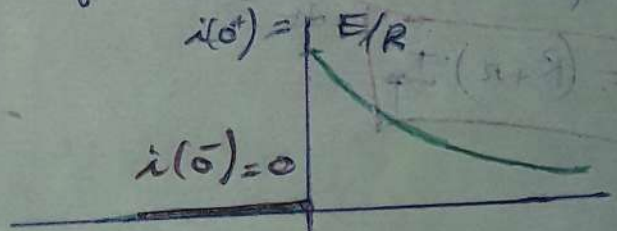 i(0⁺) = E/R
i(0⁻) = 0